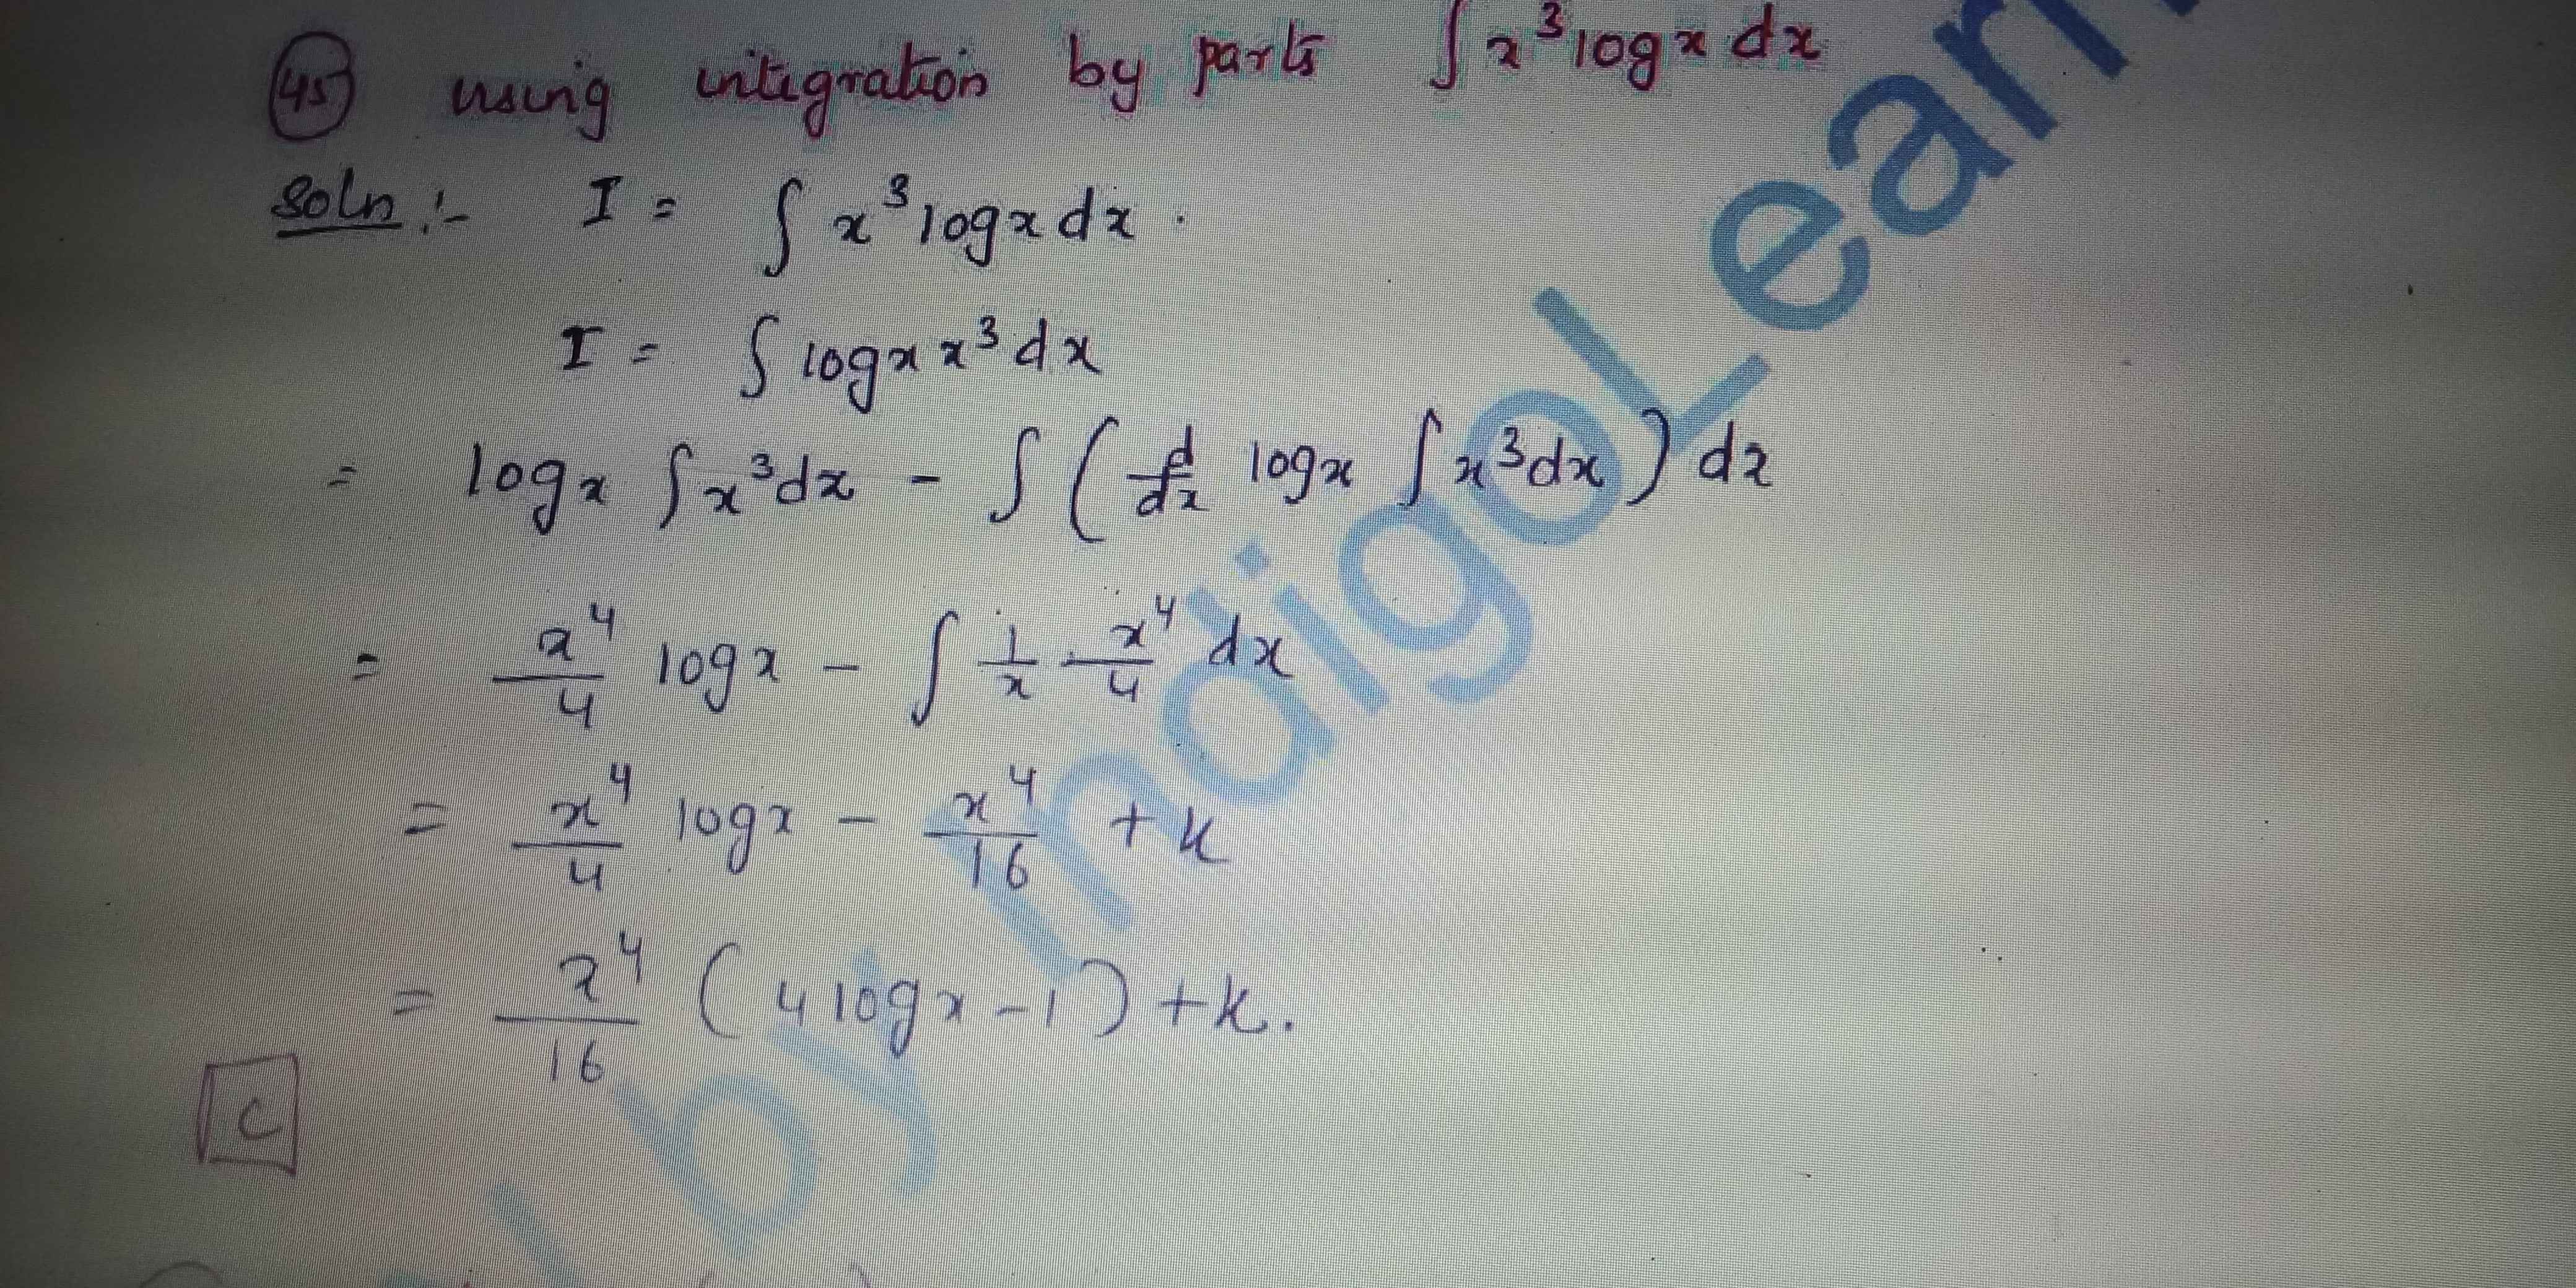 45 using integration by parts ∫ x³ log x dx
Soln :- I = ∫ x³ log x dx .
I = ∫ log x x³ dx
= log x ∫ x³ dx - ∫ ( d/dx log x ∫ x³ dx ) dx
= x⁴/4 log x - ∫ 1/x · x⁴/4 dx
= x⁴/4 log x - x⁴/16 + k
= x⁴/16 ( 4 log x - 1 ) + k.
C
by IndigoLearn